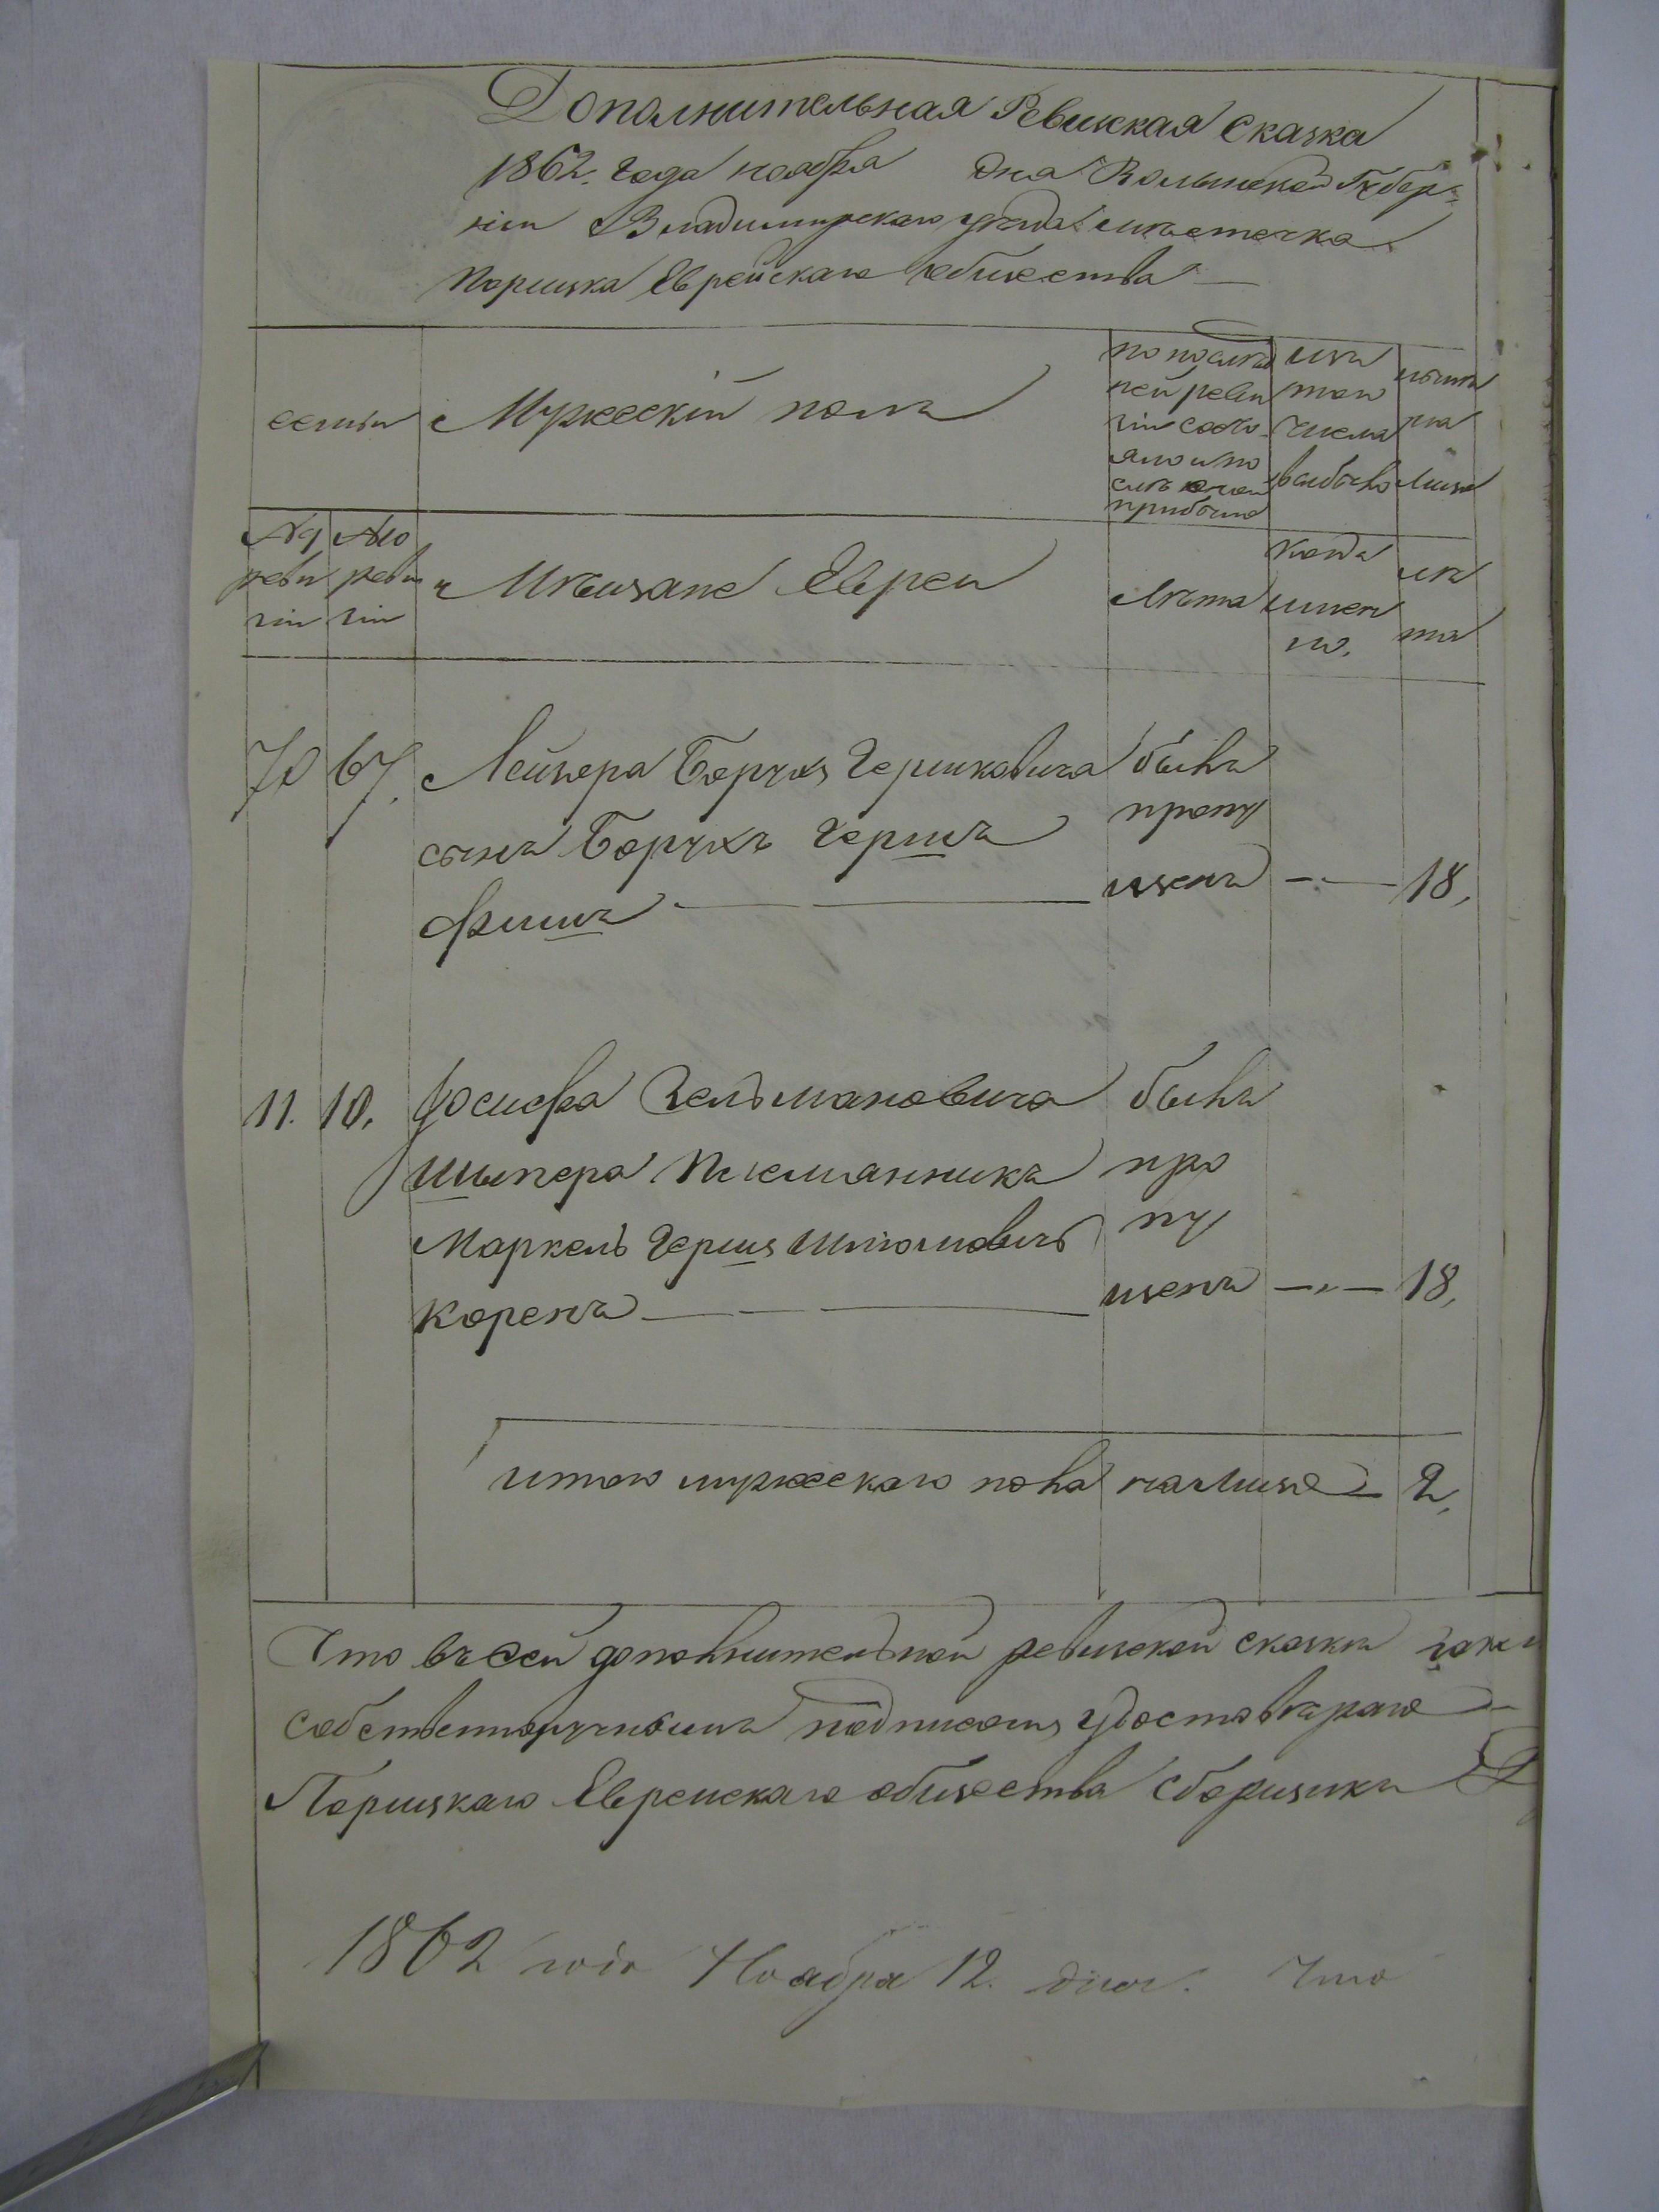 Дополнительная Ревизская сказка
1862. года ноября дня Волынской Губер-
ніи Владимирскаго уѣзда мѣстечка
Порицка Еврейскаго общества
семьи Мужескій полъ
по послѣд ней реви зіи состо- яло и по
изъ того числа выбыло
нынѣ на лицо
№ 9 реви зіи
№ 10 реви зіи
Мѣщане Евреи
лѣта
когда имен но.
лѣ та
70 67. Лейзера Борух Гершковича былъ
сынъ Борухъ Гершъ пропу
Фишъ щенъ — 18,
11. 10. Іосифа Зельмановича былъ
Шпера Племянникъ про
Маркель Герш Шліомовичъ пу
Коренъ щенъ — 18,
итого мужескаго пола налицо 2,
Что въ сей дополнительной ревизской сказки
собственноручнымъ подписом удостовѣряю
Порицкаго Еврейскаго общества сборщикъ
1862 года Ноября 12. дня. Что